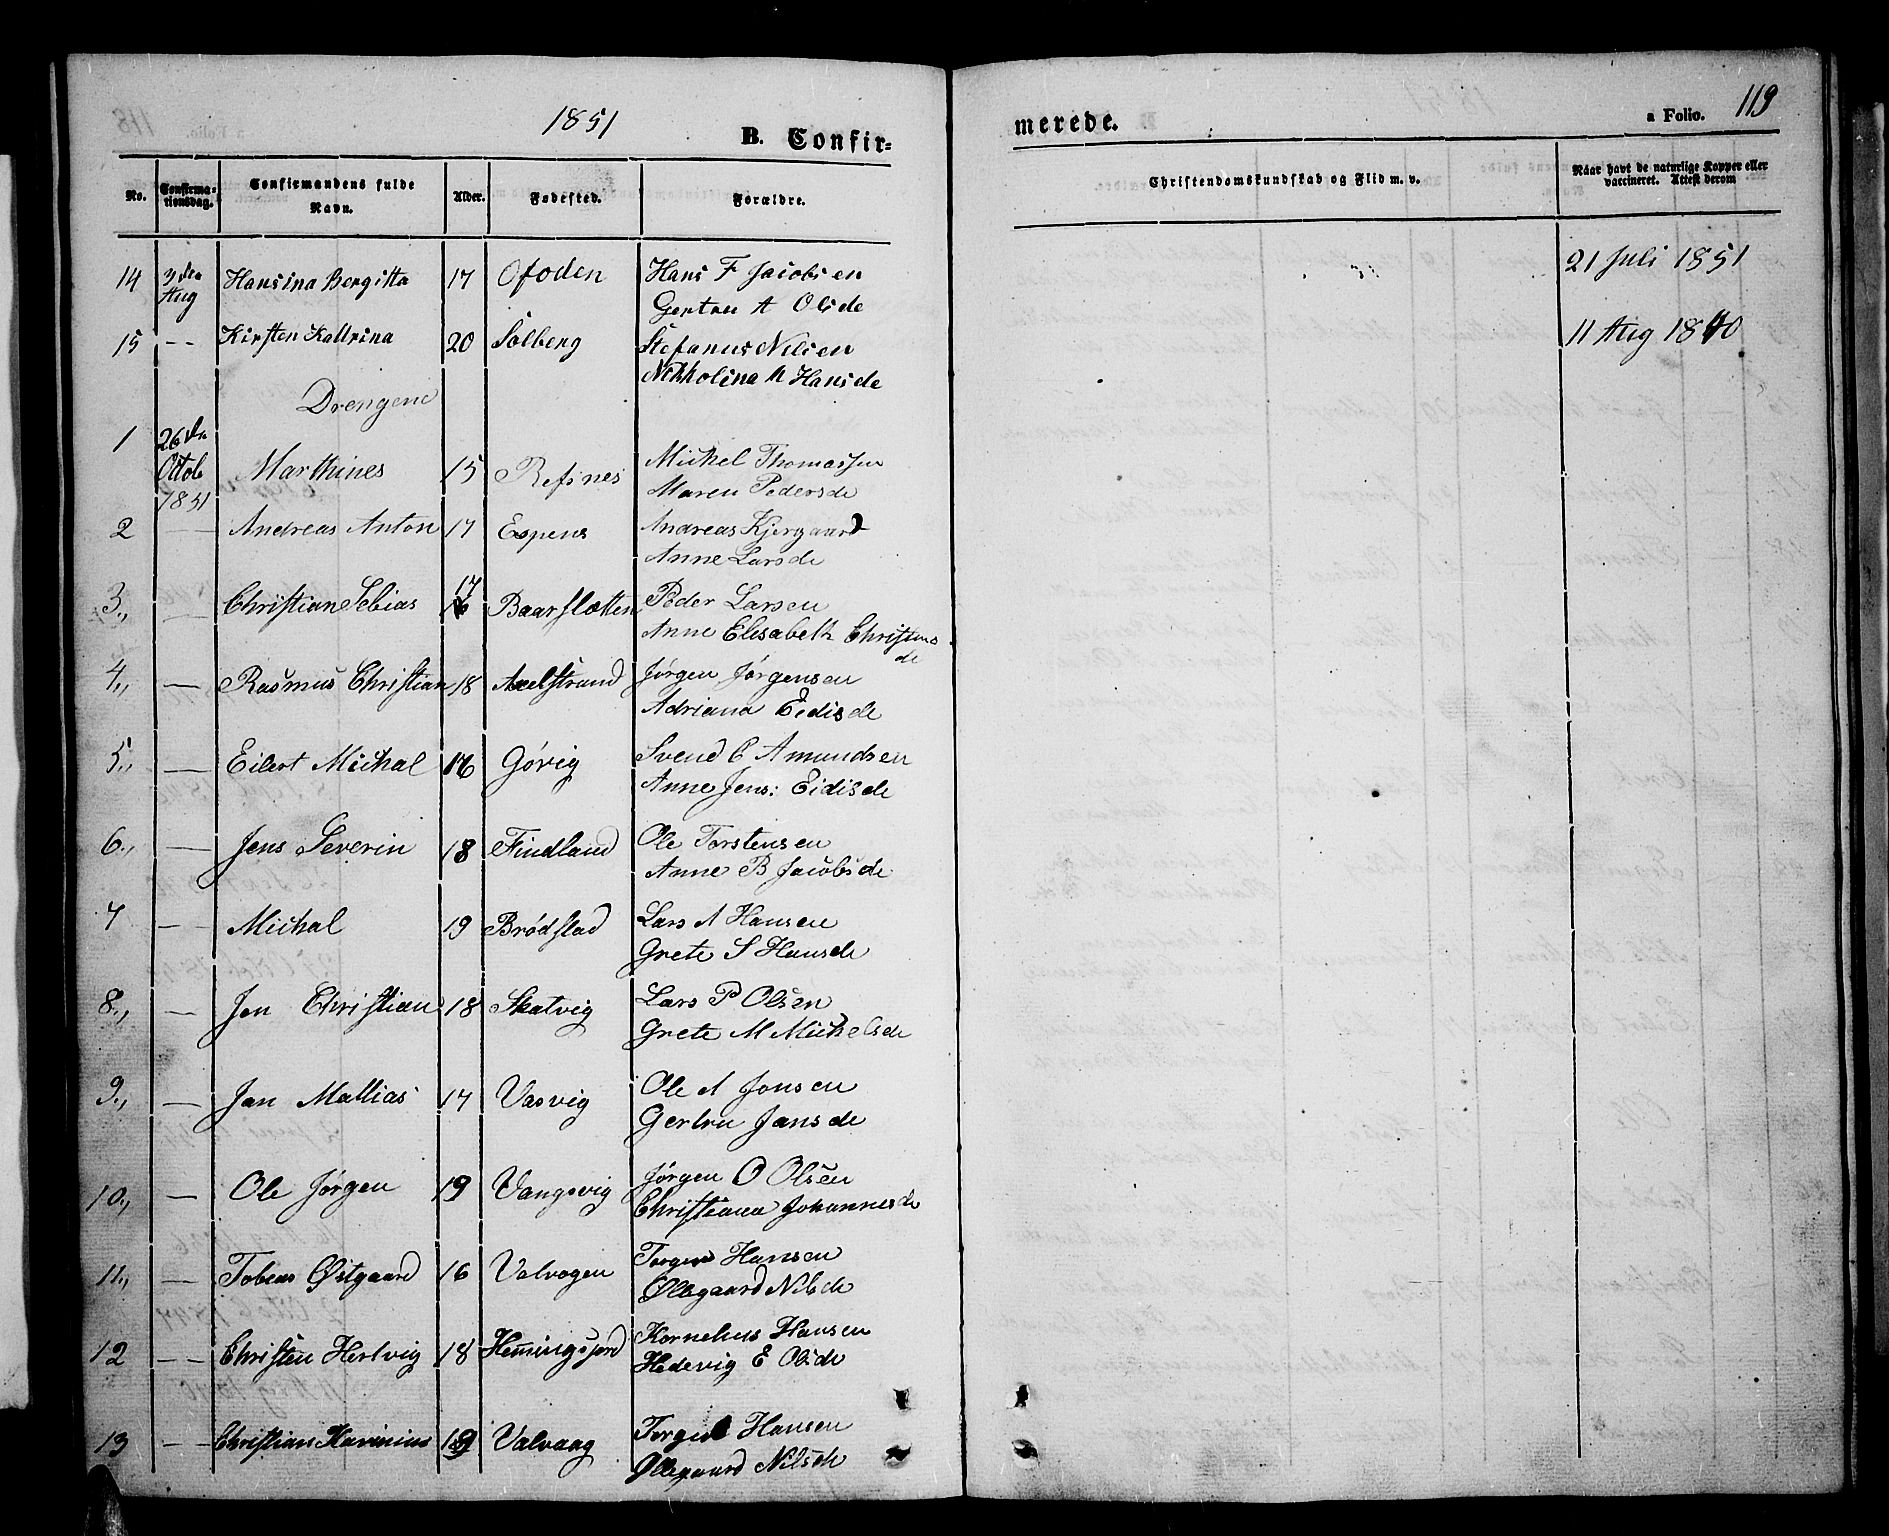 1851
B. Confir=
merede.
a Folio. 119
No. Confirmationsdag. Confirmandens fulde Navn. Alder. Fødested. Forældre. Christendomskundskab og Flid m. v. Naar havt de naturlige Kopper eller vaccineret. Attest derom
14 3den Aug Hansina Bergitta 17 Ofoden Hans F Jacobsen 21 Juli 1851
Gertru A Olsde
15 -- Kirsten Kattrina 20 Solberg Stefanus Nilsen 11 Aug 1840
Nikkolina M Hansde
Drengene
1 26de Octob 1851 Marthines 15 Refsnes Mickel Thomassen
Maren Pedersde
2 — Andreas Anton 17 Espens Andreas Kjergaard
Anne Larsde
3., — Christian Tebias 17 Baarslotten Peder Larsen
Anne Elisabeth Christensde
4., — Rasmus Christian 18 Axelstrand Jørgen Jørgensen
Adriana Eidisde
5., — Eilert Michal 16 Gøvig Svend C Amundsen
Anne Jens: Eidisde
6., — Jens Severin 18 Findland Ole Torstensen
Anne B Jacobsde
7 — Michal 19 Brødstad Lars A Hansen
Grete S Hansde
8., — Jen Christian 18 Skatvig Lars P Olsen
Grete M Michelsde
9., — Jan Mattias 17 Vasvig Ole A Jonsen
Gertru Jansde
10., — Ole Jørgen 19 Vangsvig Jørgen O Olsen
Christiana Johannesde
11., — Tobeas Østgaard 16 Valvogen Torger Hansen
Øllegaard Nilsde
12 -- Christen Hertvig 18 Hemingsjord Kornelius Hansen
Hedevig E Olsde
13 -- Christian Karinius 19 Valvaag Torger Hansen
Øllegaard Nilsde